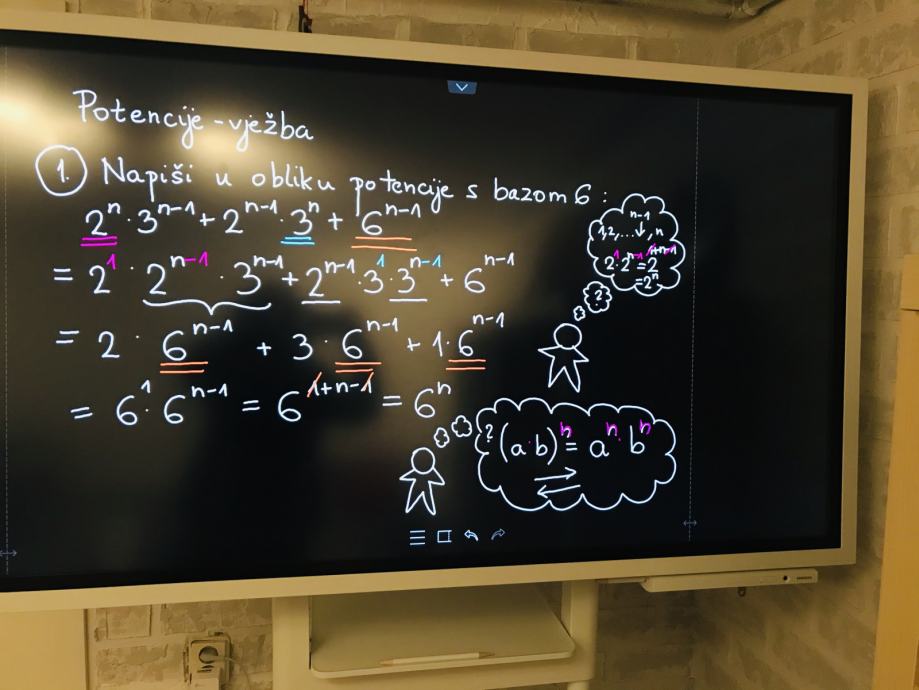 Potencije - vježba
1. Napiši u obliku potencije s bazom 6:
2ⁿ · 3ⁿ⁻¹ + 2ⁿ⁻¹ · 3ⁿ + 6ⁿ⁻¹
= 2¹ · 2ⁿ⁻¹ · 3ⁿ⁻¹ + 2ⁿ⁻¹ · 3¹ · 3ⁿ⁻¹ + 6ⁿ⁻¹
= 2 · 6ⁿ⁻¹ + 3 · 6ⁿ⁻¹ + 1 · 6ⁿ⁻¹
= 6¹ · 6ⁿ⁻¹ = 6¹⁺ⁿ⁻¹ = 6ⁿ
n-1
1,2,...↓, n
2¹ · 2ⁿ⁻¹ = 2¹⁺ⁿ⁻¹
= 2ⁿ
?
? (a · b)ⁿ = aⁿ · bⁿ